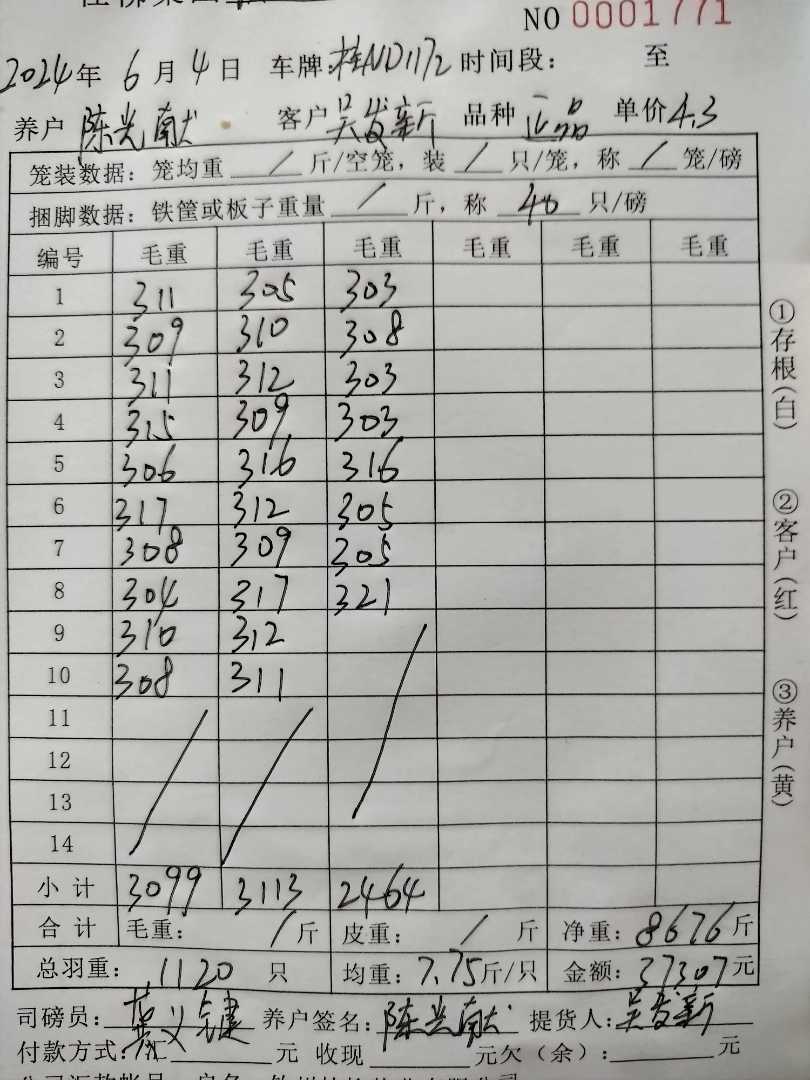 NO 0001771
2024年 6月4日 车牌:桂ND1172 时间段: 至
养户 陈光献 客户 吴发新 品种 正品 单价4.3
笼装数据: 笼均重 / 斤/空笼, 装 / 只/笼, 称 / 笼/磅
捆脚数据: 铁筐或板子重量 / 斤, 称 40 只/磅
编号 毛重 毛重 毛重 毛重 毛重 毛重
1 311 305 303
2 309 310 308
3 311 312 303
4 315 309 303
5 306 316 316
6 317 312 305
7 308 309 305
8 304 317 321
9 310 312
10 308 311
11
12
13
14
小计 3099 3113 2464
合计 毛重: / 斤 皮重: / 斤 净重: 8676斤
总羽重: 1120 只 均重: 7.75斤/只 金额: 37307元
司磅员: 养户签名: 陈光献 提货人: 吴发新
付款方式: 汇 元 收现 元欠(余): 元
①存根(白)
②客户(红)
③养户(黄)